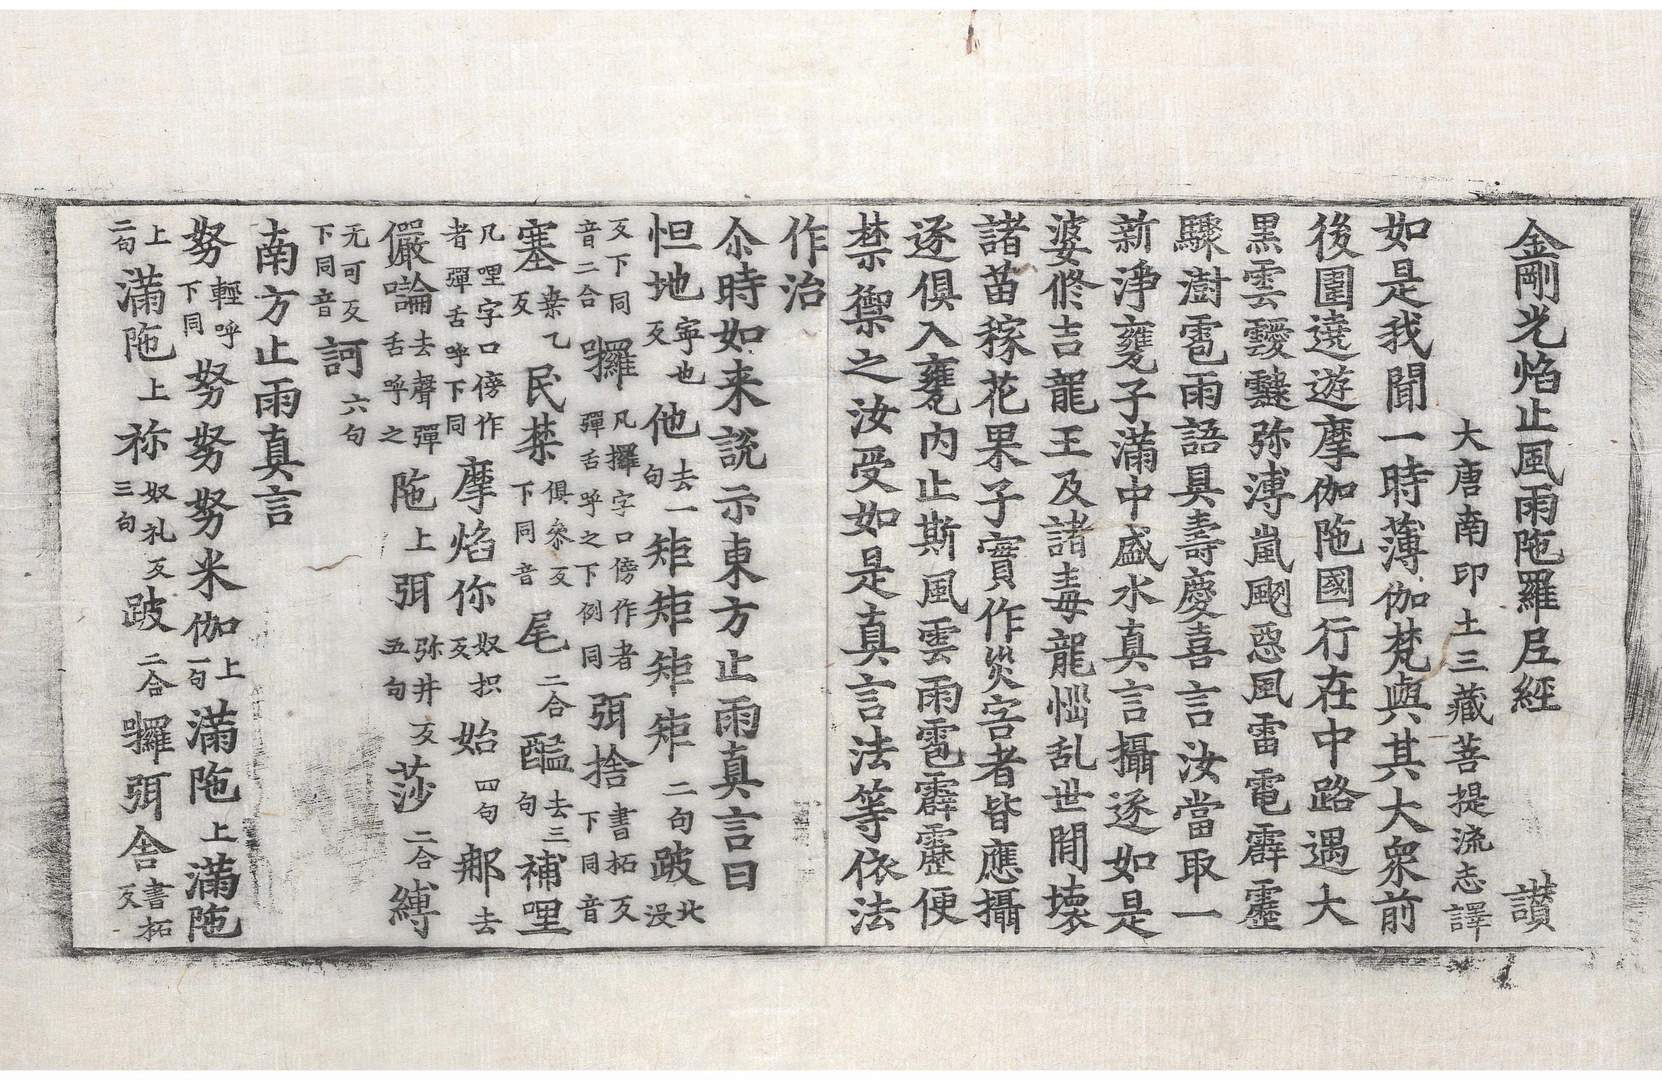 金剛光焰止風雨陁羅尼經 讃
大唐南印土三藏菩提流志譯
如是我聞一時薄伽梵與其大衆前
後圍遶遊摩伽陁國行在中路遇大
黒雲靉靆弥溥嵐颲惡風雷電霹靂
驟澍雹雨語具壽慶喜言汝當取一
新淨甕子滿中盛水真言攝逐如是
婆修吉龍王及諸毒龍惱乱世閒壞
諸苗稼花果子實作災害者皆應攝
逐俱入甕內止斯風雲雨雹霹靂便
禁禦之汝受如是真言法等依法
作治
尒時如来說示東方止雨真言曰
怛地寧也反他去一句矩矩矩矩二句跛北沒
反下同音二合囉凡囉字口傍作者彈舌呼之下例同弭捨書柘反下同音
塞桒乙反民禁俱叅反下同音尾二合醯去三句補哩
凡哩字口傍作者彈舌呼下同摩焰你奴枳反始四句那去
儼㘕去聲彈舌呼之陁上弭弥井反五句莎二合縛
无可反下同音訶六句
南方止雨真言
努輕呼下同努努努米伽上一句滿陁上滿陁
上二句滿陁上祢奴礼反三句跛二合囉弭舍書柘反